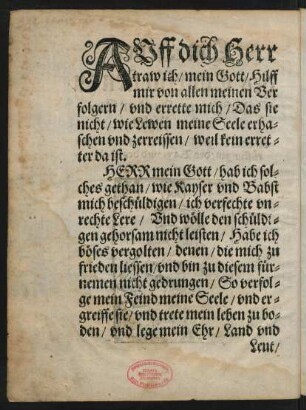 AVff dich Herr
traw ich / mein Gott / Hilff
mir von allen meinen Ver
folgern / vnd errette mich / Das sie
nicht / wie Lewen meine Seele erha-
schen vnd zerreissen / weil kein erret-
ter da ist.
HERR mein Gott / hab ich sol-
ches gethan / wie Kayser vnd Babst
mich beschüldigen / ich verfechte vn-
rechte Lere / Vnd wölle den schüldi-
gen gehorsam nicht leisten / Habe ich
böses vergolten / denen / die mich zu
frieden liessen / vnd bin zu diesem für-
nemen nicht gedrungen / So verfol-
ge mein Feind meine Seele / vnd er-
greiffe sie / vnd trete mein leben zu bo-
den / vnd lege mein Ehr / Land vnd
Leut /